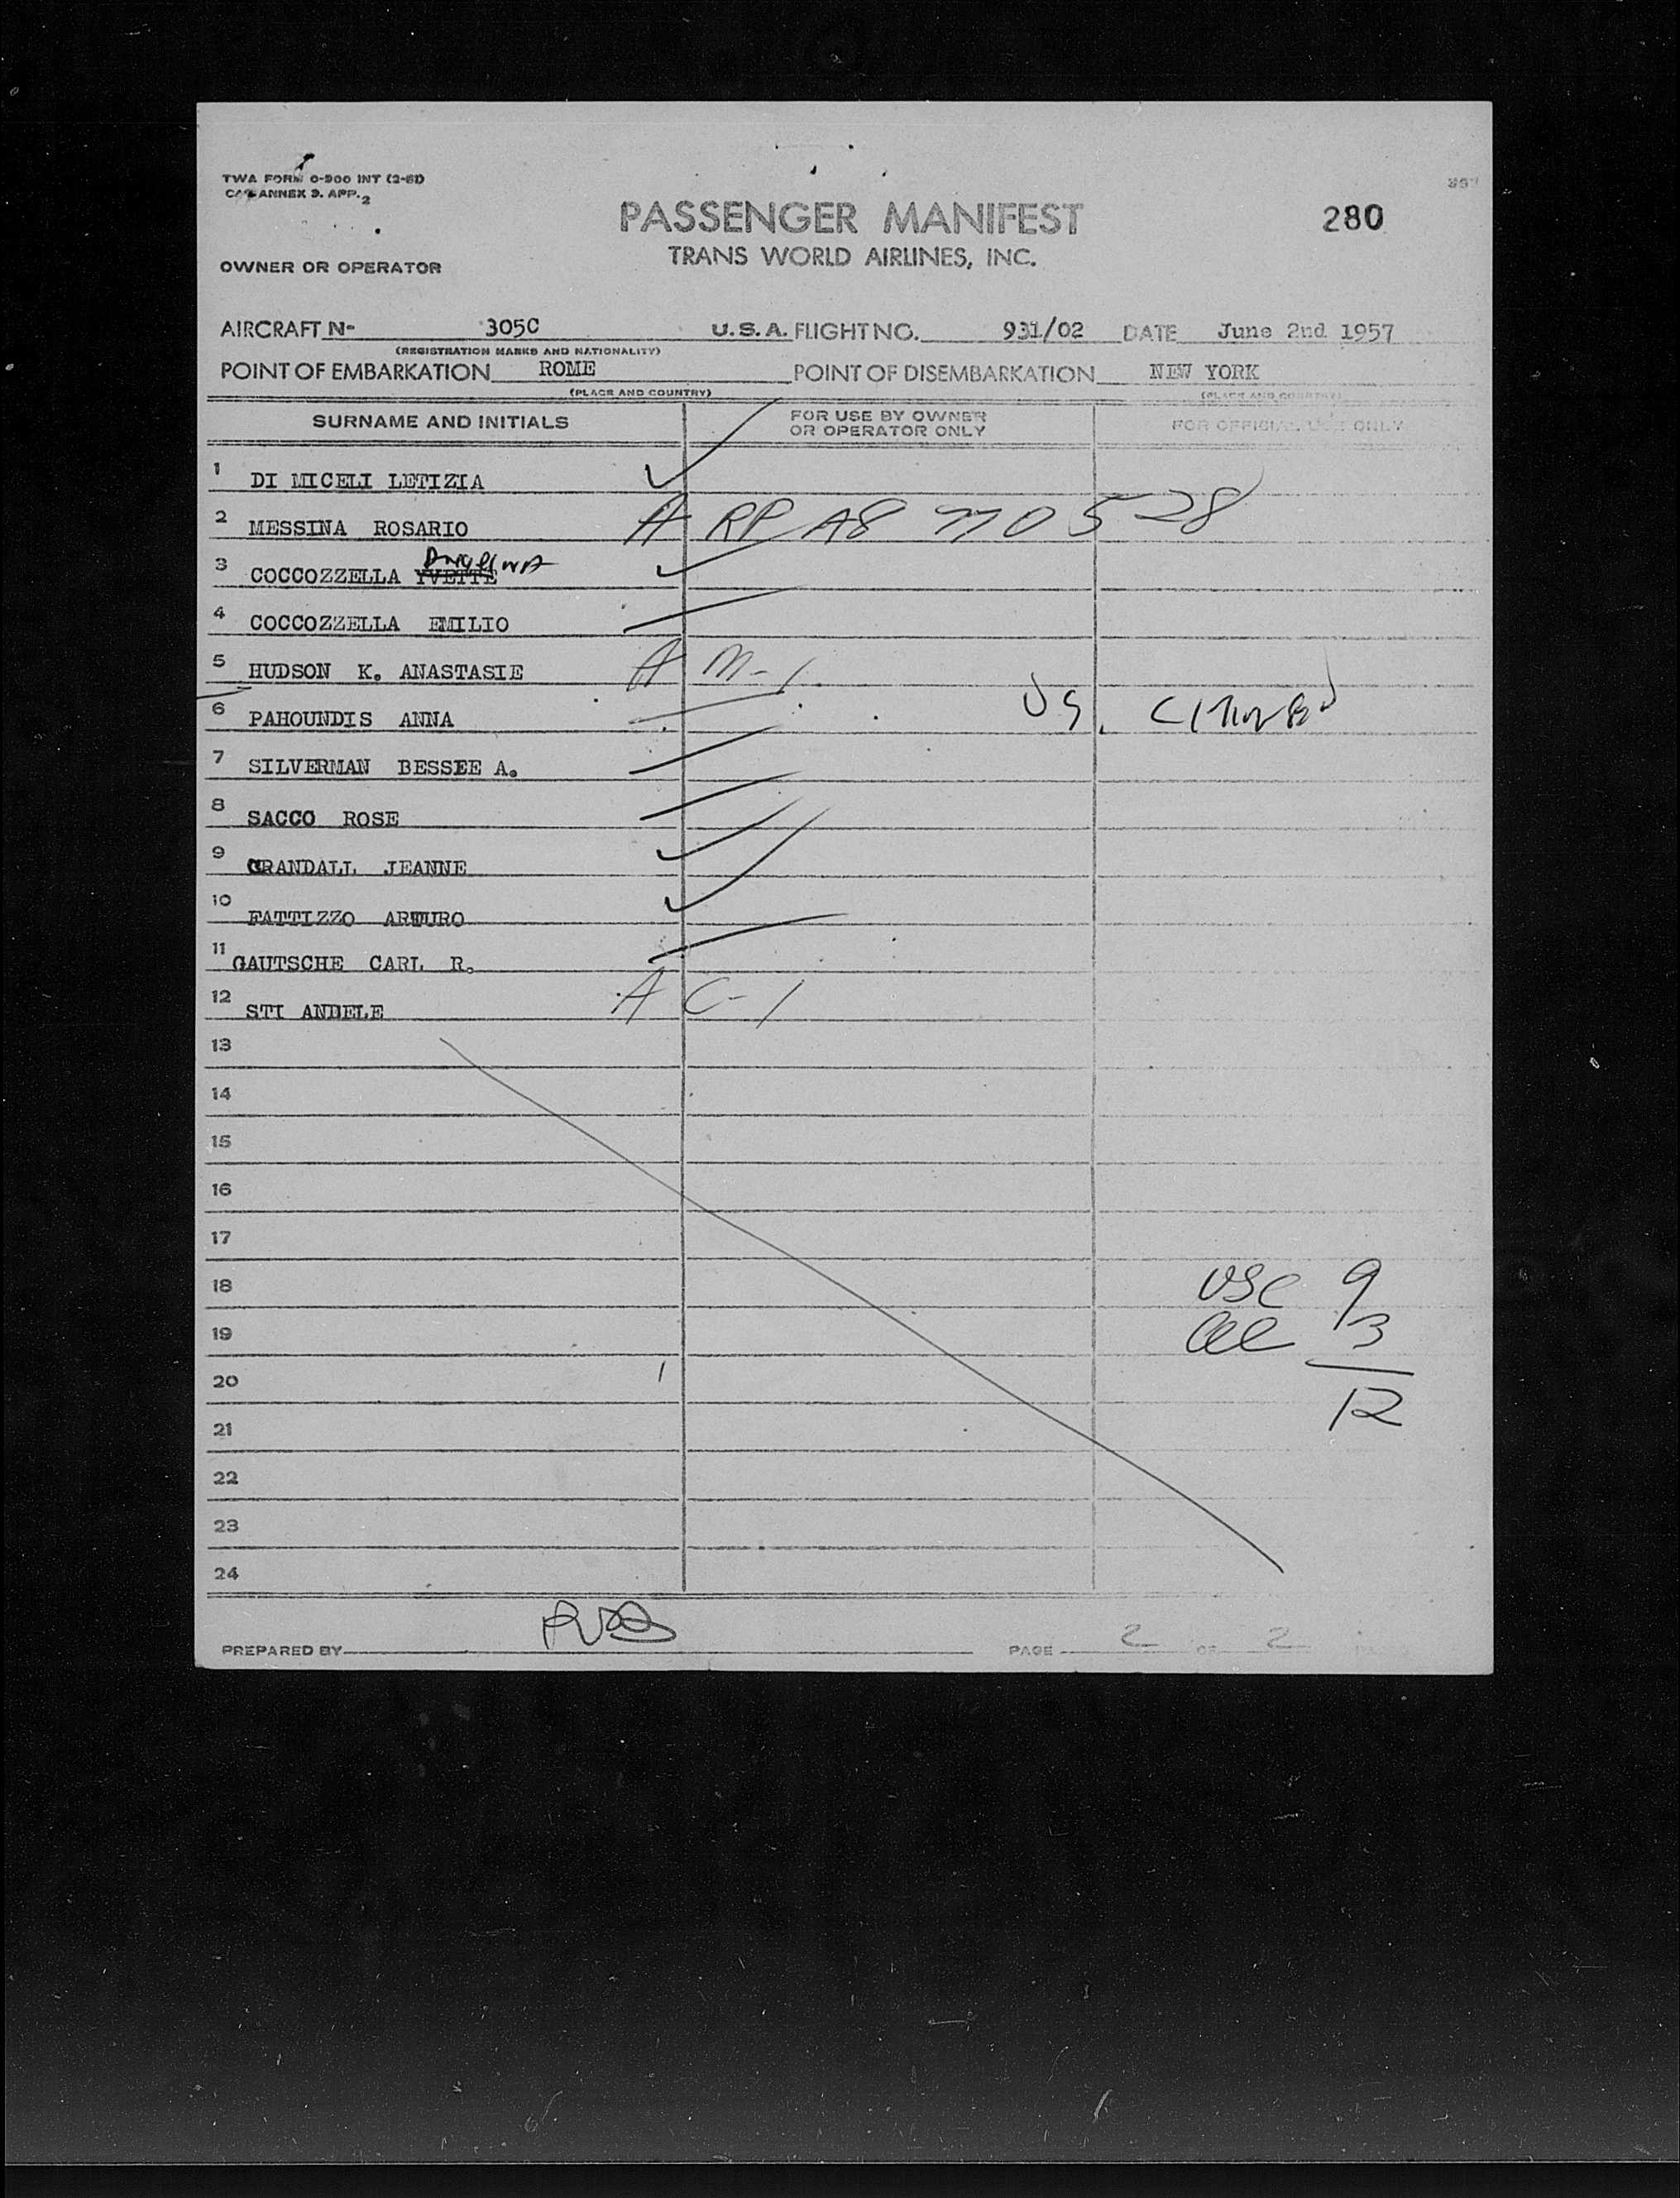 TWA FORM 0-900 INT (2-51)
ANNEX 9. APP. 2
PASSENGER MANIFEST
280
TRANS WORLD AIRLINES, INC.
OWNER OR OPERATOR
AIRCRAFT N- 305C U.S.A. FLIGHT NO. 931/02 DATE June 2nd 1957
(REGISTRATION MARKS AND NATIONALITY)
POINT OF EMBARKATION ROME POINT OF DISEMBARKATION NEW YORK
(PLACE AND COUNTRY) (PLACE AND COUNTRY)
SURNAME AND INITIALS FOR USE BY OWNER OR OPERATOR ONLY FOR OFFICIAL USE ONLY
1 DI MICELI LETIZIA
2 MESSINA ROSARIO A RP A8 770 528
Angelina
3 COCCOZZELLA YVETTE
4 COCCOZZELLA EMILIO
5 HUDSON K. ANASTASIE A M-1
6 PAHOUNDIS ANNA US. CITIZEN
7 SILVERMAN BESSEE A.
8 SACCO ROSE
9 CRANDALL JEANNE
10 FATTIZZO ARTURO
11 GAUTSCHE CARL R.
12 STI ANDELE A C-1
13
14
15
16
17
18 USC 9
19 3
20
12
21
22
23
24
PREPARED BY PAGE 2 OF 2